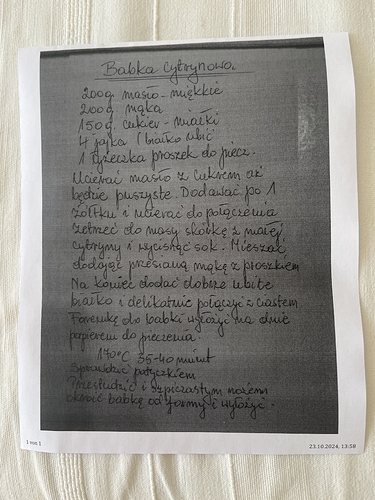 Babka cytrynowa
200g. masło - miękkie
200g mąka
150g. cukier - miałki
4 jajka / białko ubić
1 łyżeczka proszek do piecz.
Ucierać masło z cukrem aż
będzie puszyste. Dodawać po 1
żółtku i ucierać do połączenia
zetrzeć do masy skórkę z małej
cytryny i wycisnąć sok. Mieszać
dodając przesianą mąkę z proszkiem
Na koniec dodać dobrze ubite
białko i delikatnie połączyć z ciastem
Foremkę do babki wyłożyć na dnie
papierem do pieczenia.
170°C 35-40 minut
Sprawdzić patyczkiem
Przestudzić i szpiczastym nożem
okroić babkę od formy i wyłożyć.
1 von 1
23.10.2024, 13:58